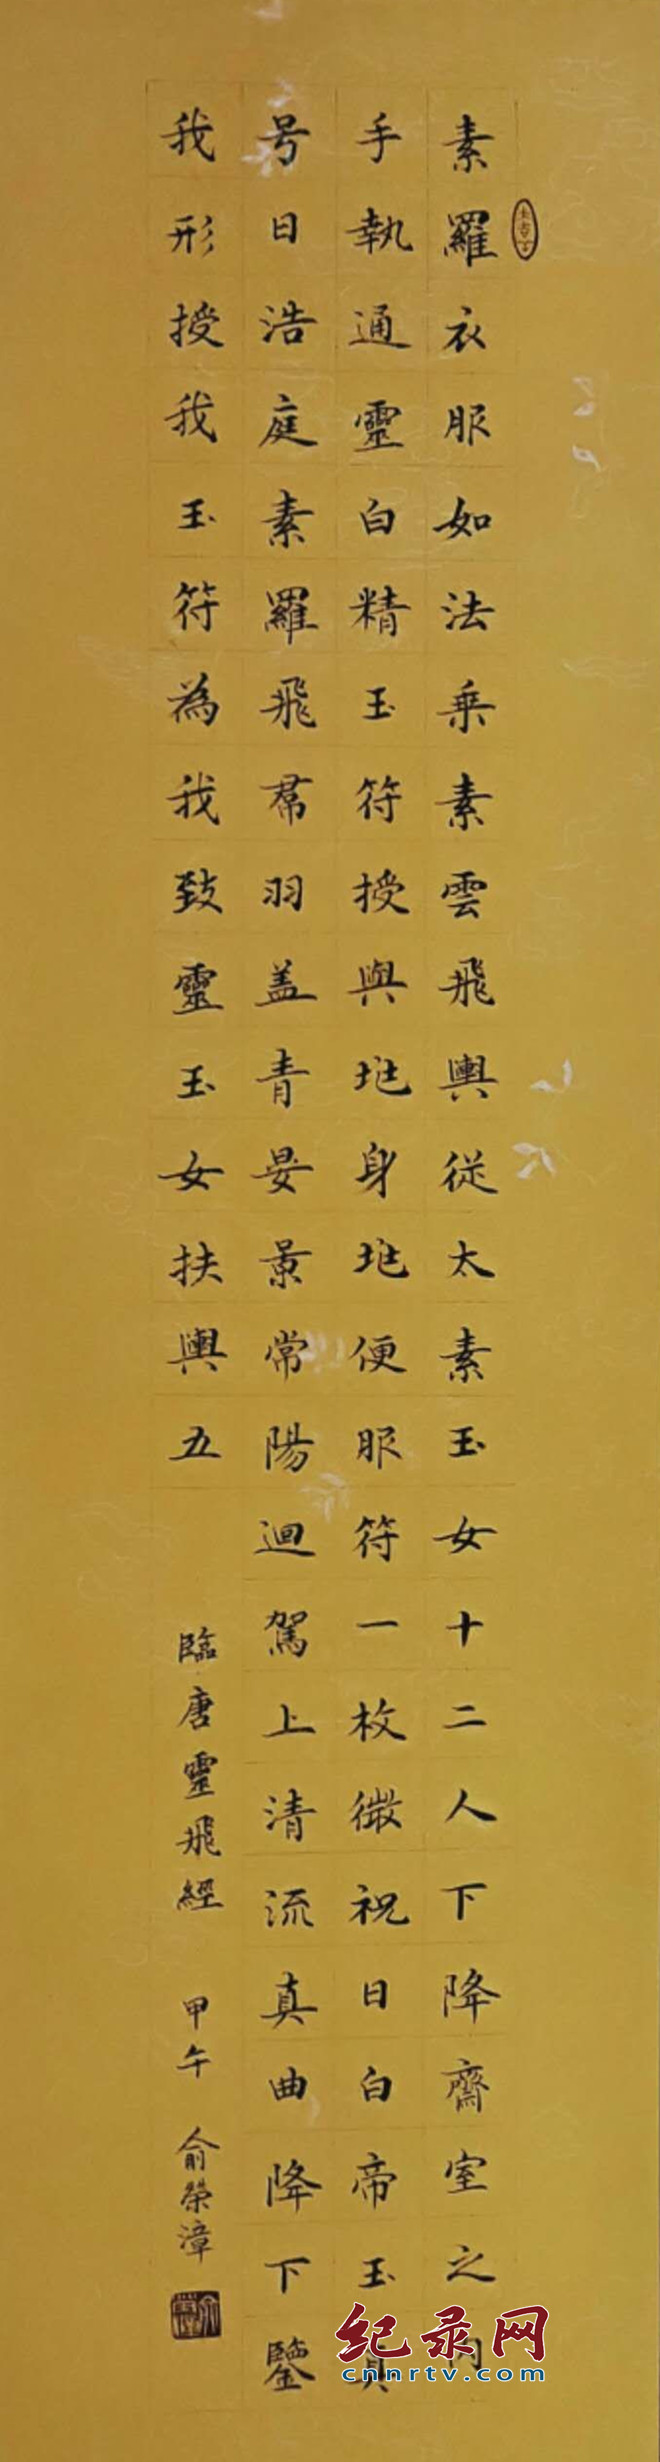 素羅衣服如法乗素雲飛輿従太素玉女十二人下降齋室之内
手執通靈白精玉符授與𡊮身𡊮便服符一枚微祝曰白帝玉真
号曰浩庭素羅飛帬羽盖青晏景常陽迴駕上清流真曲降下鑒
我形授我玉符為我致靈玉女扶輿五
臨唐靈飛經 甲午 俞榮漳
纪录网
cnnrtv.com